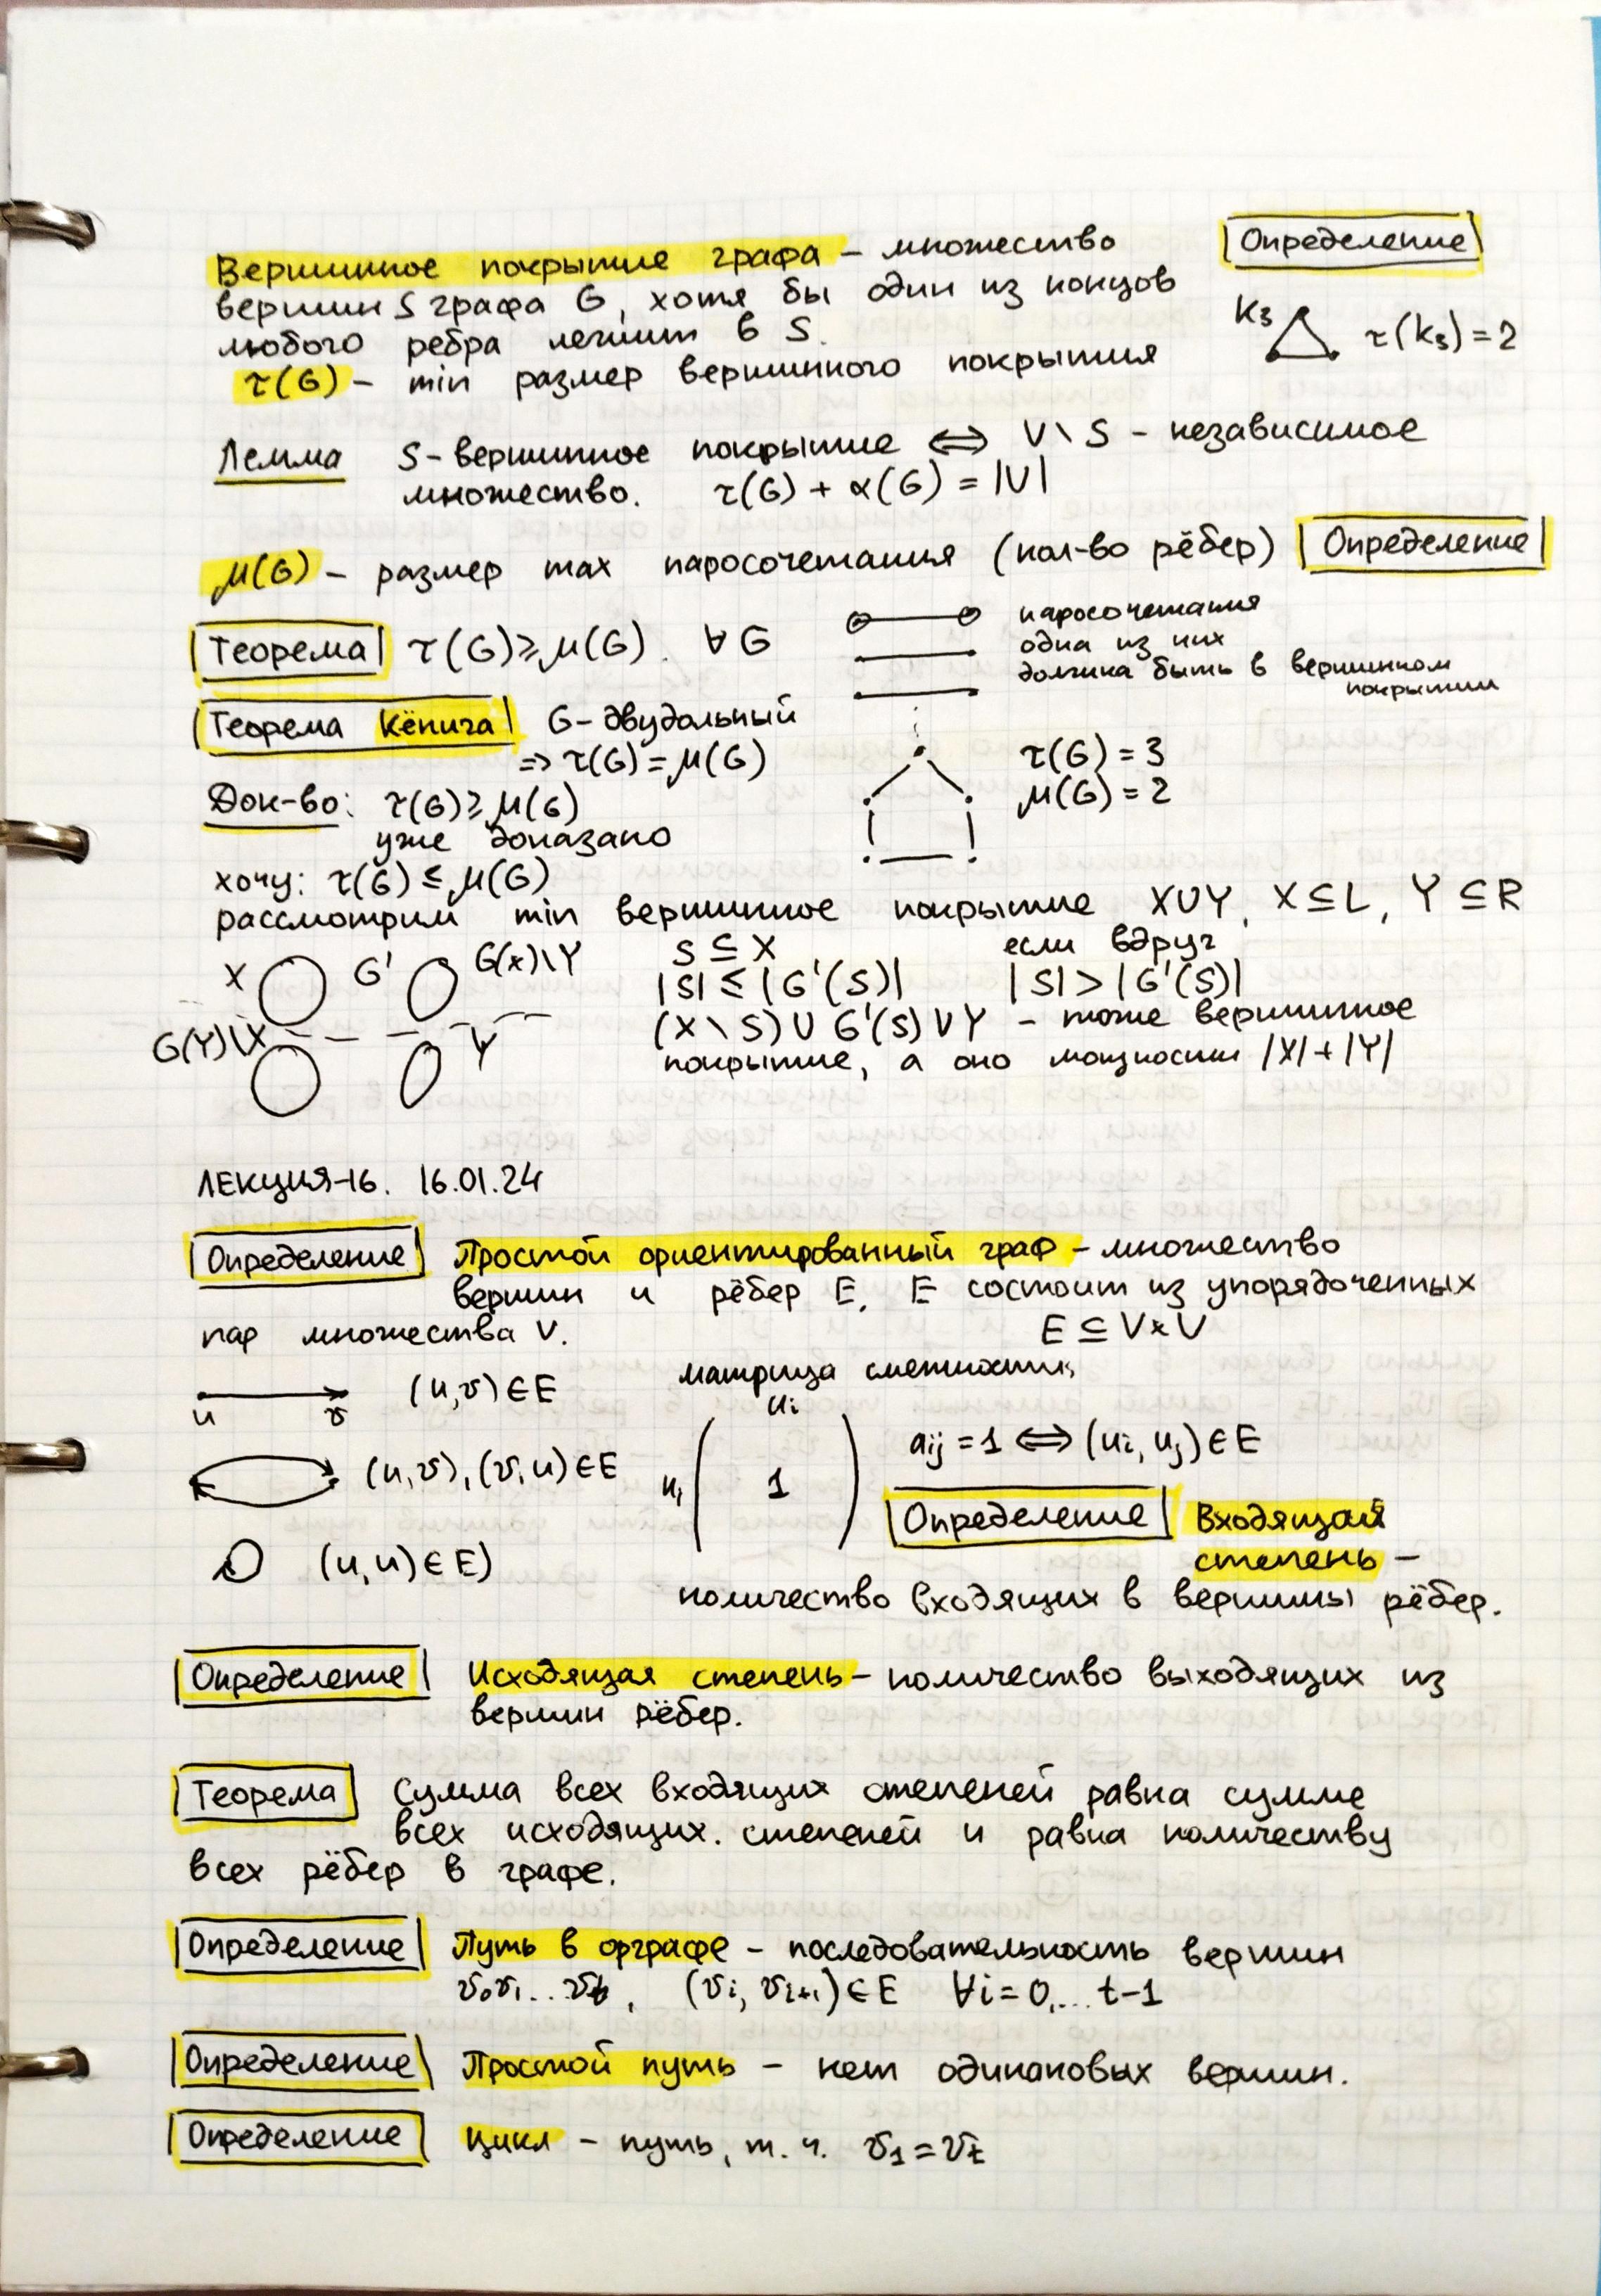 Вершинное покрытие графа – множество
Определение
вершин S графа G, хотя бы один из концов
любого ребра лежит в S.
K₃ τ(K₃) = 2
τ(G) – min размер вершинного покрытия
Лемма S – вершинное покрытие ⟺ V \ S – независимое
множество. τ(G) + α(G) = |V|
μ(G) – размер max паросочетания (кол-во рёбер) Определение
Теорема τ(G) ≥ μ(G). ∀ G
паросочетания
одна из них
должна быть в вершинном
покрытии
Теорема Кёнига G – двудольный
⇒ τ(G) = μ(G)
τ(G) = 3
μ(G) = 2
Док-во: τ(G) ≥ μ(G)
уже доказано
хочу: τ(G) ≤ μ(G)
рассмотрим min вершинное покрытие X∪Y, X ⊆ L, Y ⊆ R
X G' G(x)\Y
G(Y)\X Y
S ⊆ X если вдруг
|S| ≤ |G'(S)| |S| > |G'(S)|
(X \ S) ∪ G'(S) ∪ Y – тоже вершинное
покрытие, а оно мощности |X| + |Y|
ЛЕКЦИЯ-16. 16.01.24
Определение Простой ориентированный граф – множество
вершин и рёбер E, E состоит из упорядоченных
пар множества V. E ⊆ V×V
u v (u,v) ∈ E
матрица смежности
uᵢ
uⱼ ( 1 ) aij = 1 ⟺ (ui, uj) ∈ E
(u,v), (v,u) ∈ E
(u,u) ∈ E)
Определение Входящая
степень –
количество входящих в вершины рёбер.
Определение Исходящая степень – количество выходящих из
вершин рёбер.
Теорема Сумма всех входящих степеней равна сумме
всех исходящих. степеней и равна количеству
всех рёбер в графе.
Определение Путь в орграфе – последовательность вершин
v₀v₁...vt, (vi, vi+1) ∈ E ∀i = 0,... t-1
Определение Простой путь – нет одинаковых вершин.
Определение Цикл – путь, т. ч. v₁ = vt